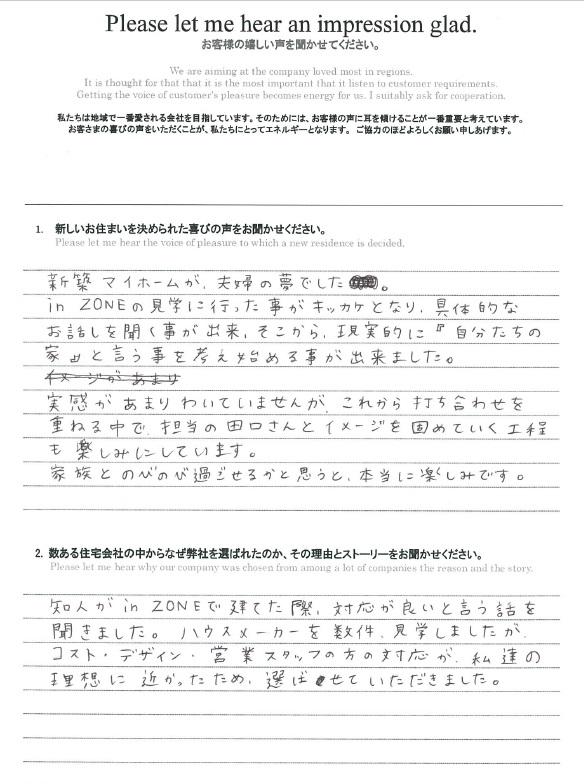 Please let me hear an impression glad.
お客様の嬉しい声を聞かせてください。
We are aiming at the company loved most in regions.
It is thought for that that it is the most important that it listen to customer requirements.
Getting the voice of customer's pleasure becomes energy for us. I suitably ask for cooperation.
私たちは地域で一番愛される会社を目指しています。そのためには、お客様の声に耳を傾けることが一番重要と考えています。
お客さまの喜びの声をいただくことが、私たちにとってエネルギーとなります。 ご協力のほどよろしくお願い申しあげます。
1. 新しいお住まいを決められた喜びの声をお聞かせください。
Please let me hear the voice of pleasure to which a new residence is decided.
新築マイホームが、夫婦の夢でした。
in ZONEの見学に行った事がキッカケとなり、具体的な
お話しを聞く事が出来、そこから、現実的に『自分たちの
家』と言う事を考え始める事が出来ました。
イメージがあまり
実感があまりわいていませんが、これから打ち合わせを
重ねる中で、担当の田口さんとイメージを固めていく工程
も楽しみにしています。
家族とのびのび過ごせるかと思うと、本当に楽しみです。
2. 数ある住宅会社の中からなぜ弊社を選ばれたのか、その理由とストーリーをお聞かせください。
Please let me hear why our company was chosen from among a lot of companies the reason and the story.
知人がin ZONEで建てた際、対応が良いと言う話を
聞きました。ハウスメーカーを数件、見学しましたが、
コスト・デザイン・営業スタッフの方の対応が、私達の
理想に近かったため、選ばせていただきました。